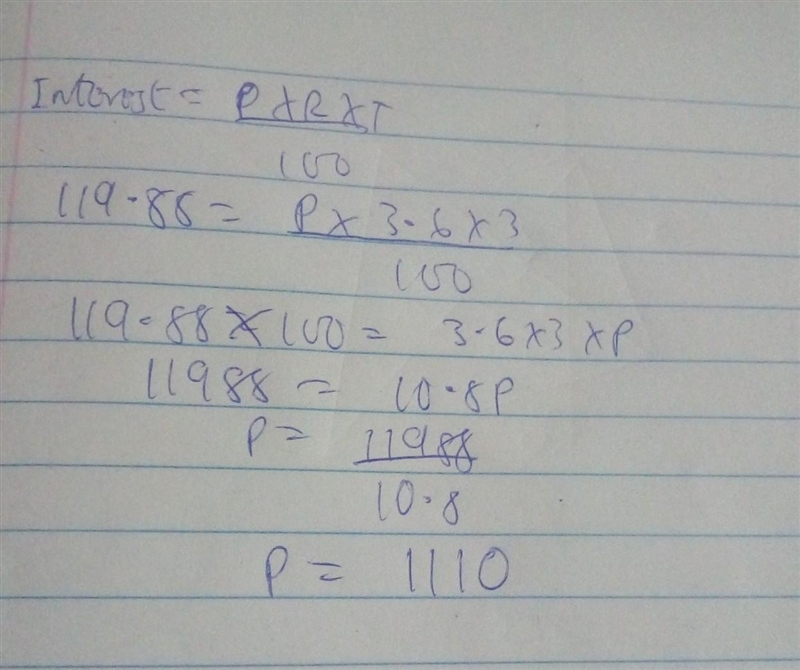 Interest = P X R X T
100
119.88 = P X 3.6 X 3
100
119.88 X 100 = 3.6 X 3 X P
11988 = 10.8P
P = 11988
10.8
P = 1110